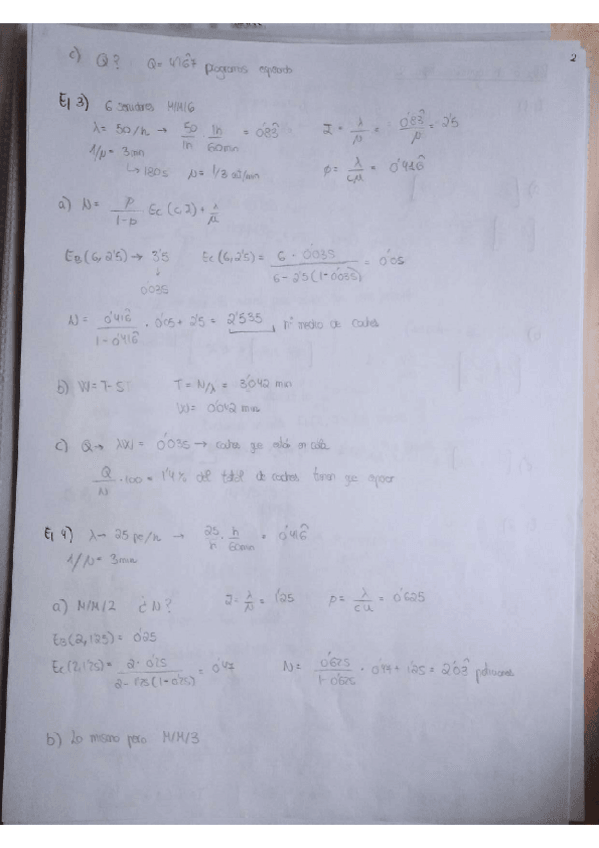 2
c) Q? Q = 4'167 programas esperando
Ej 3) 6 servidores M/M/6
λ = 50/h → 50/1h · 1h/60min = 0'83̂ I = λ/μ = 0'83̂/μ = 2'5
1/μ = 3min
↳ 180s μ = 1/3 /min ρ = λ/cμ = 0'416̂
a) N = ρ/1-ρ · Ec(c, I) + λ/μ
EB(6, 2'5) → 3'5 Ec(6, 2'5) = 6 · 0'035 / 6 - 2'5(1-0'035) = 0'05
↓
0'035
N = 0'416̂/1-0'416̂ · 0'05 + 2'5 = 2'535 nº medio de coches
b) W = T - S T = N/λ = 3'042 min
W = 0'042 min
c) Q → λW = 0'035 → coches que están en cola
Q/N · 100 = 1'4% del total de coches tienen que esperar
Ej 4) λ → 25 pe/h → 25/h · h/60min = 0'416̂
1/μ = 3min
a) M/M/2 ¿N? I = λ/μ = 1'25 ρ = λ/cμ = 0'625
EB(2, 1'25) = 0'25
Ec(2, 1'25) = 2 · 0'25 / 2 - 1'25(1-0'25) = 0'47 N = 0'625/1-0'625 · 0'47 + 1'25 = 2'03̂ peticiones
b) Lo mismo pero M/M/3